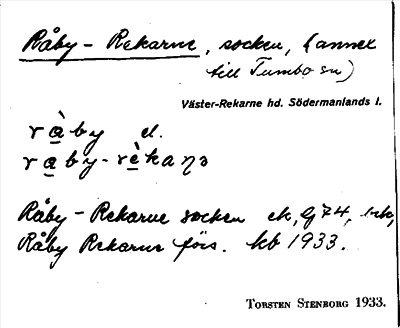 Råby-Rekarne, socken, (annex
till Tumbo sn)
Väster-Rekarne hd. Södermanlands l.
rà̱by el.
ra̱by-rè̱kaṇə
Råby-Rekarne socken ek, Gj 74,
Råby Rekarne förs. kb 1933.
TORSTEN STENBORG 1933.